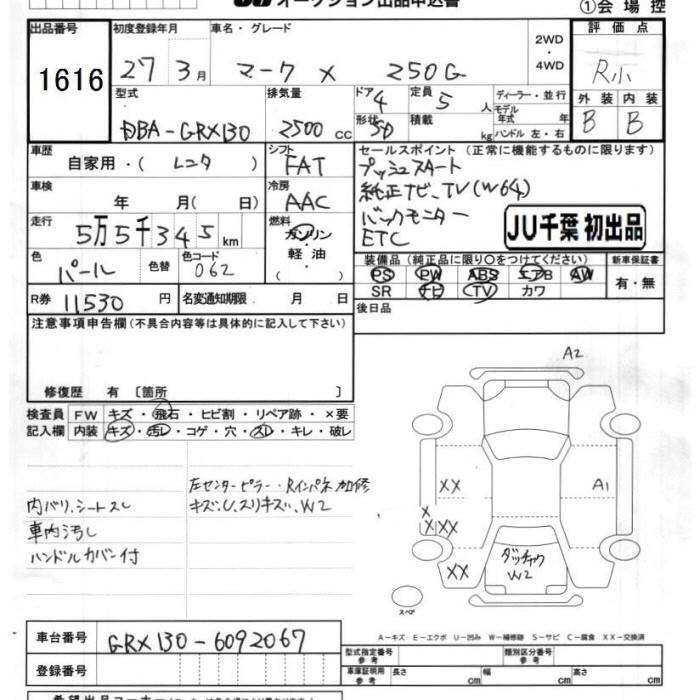 オークション出品申込書
①会場控
出品番号 初度登録年月 車名・グレード 評価点
1616 27 3月 マークX 250G 2WD・4WD R小
外装 内装
B B
型式 排気量 ドア 4 定員 5人 ディーラー・並行
DBA-GRX130 2500cc 形状 SD 積載 kg モデル年式 年 ハンドル 左・右
車歴 シフト セールスポイント(正常に機能するものに限ります)
自家用・( レンタ ) FAT プッシュスタート
車検 冷房 純正ナビ、TV(W64)
年 月( 日) AAC バックモニター
走行 燃料 ETC
5万5千345km ガソリン・軽油 JU千葉 初出品
色 色替 色コード 装備品(純正品に限り○をつけてください) 新車保証書
パール 062 PS PW ABS エアB AW 有・無
SR ナビ TV カワ
R券 11530円 名変通知期限 月 日 後日品
注意事項申告欄(不具合内容等は具体的に記入して下さい)
修復歴 有〔箇所 〕
検査員 FW キズ・飛石・ヒビ割・リペア跡・×要
記入欄 内装 キズ・汚レ・コゲ・穴・スレ・キレ・破レ
左センターピラー・Rインパネ加修
内バリ、シートスレ キズ、U、スリキズ、W2
車内汚し
ハンドルカバー付
A2
XX A1
X
XXX
XX
ダッチャク
W2
スペア
A-キズ E-エクボ U-凹み W-補修跡 S-サビ C-腐食 XX-交換済
車台番号 GRX130-6092067
登録番号
型式指定番号 参考 類別区分番号 参考
車庫証明用 参考 長さ cm 幅 cm 高さ cm